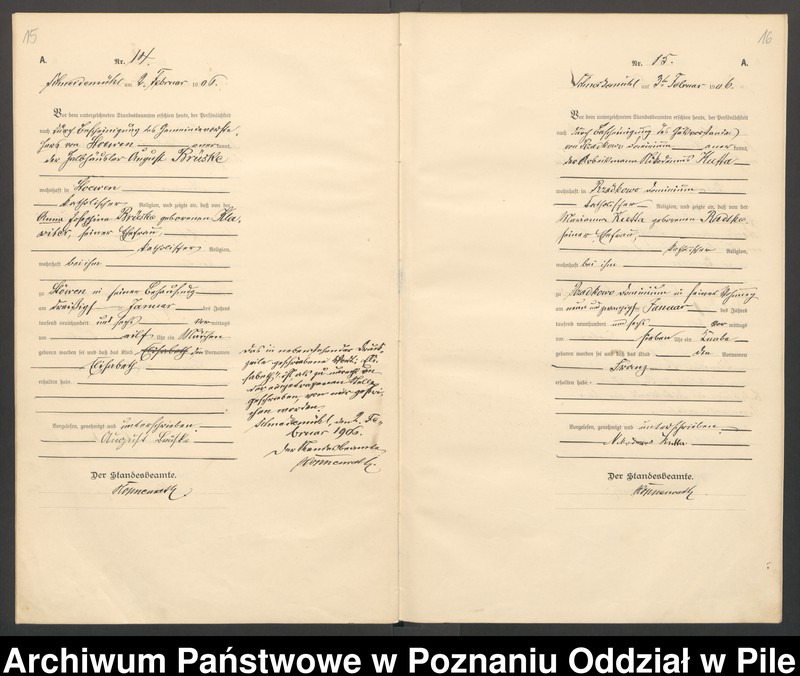 15
A.
Nr. 14.
Schneidemühl am 2. Februar 1906.
Vor dem unterzeichneten Standesbeamten erschien heute, der Persönlichkeit
nach durch Bescheinigung des Gemeindevorste-
hers von Stoewen anerkannt,
der August Krüske
wohnhaft in Stoewen
katholischer Religion, und zeigte an, daß von der
Anna Josephine geborenen Kla-
witer, seiner Ehefrau
katholischer Religion,
wohnhaft bei ihm
zu Stöwen in seiner Behausung
am dreißigsten Januar des Jahres
tausend neunhundert und sechs vormittags
um elf Uhr ein Mädchen
geboren worden sei und daß das Kind Elisabeth den Vornamen
Elisabeth
erhalten habe.
Vorgelesen, genehmigt und unterschrieben.
August
Der Standesbeamte.
Das in nebenstehender Druck-
zeile geschriebene Wort: „Eli-
sabeth" ist als zu Unrecht an
der eingetragenen Stelle
geschrieben, von mir gestri-
chen worden.
Schneidemühl, den 2. Fe-
bruar 1906.
Der Standesbeamte
16
Nr. 15.
A.
Schneidemühl am 3ten Februar 1906.
Vor dem unterzeichneten Standesbeamten erschien heute, der Persönlichkeit
nach durch Bescheinigung des Gutsvorstandes
von Rzadkowo Dominium anerkannt,
der Arbeitsmann Nikodemus Kutta
wohnhaft in Rzadkowo Dominium
katholischer Religion, und zeigte an, daß von der
Marianna Kutta geborenen Radtke
seiner Ehefrau,
katholischer Religion,
wohnhaft bei ihm
zu Rzadkowo Dominium in seiner Wohnung
am neun und zwanzigsten Januar des Jahres
tausend neunhundert und sechs vormittags
um sieben Uhr ein Knabe
geboren worden sei und daß das Kind den Vornamen
Franz
erhalten habe.
Vorgelesen, genehmigt und unterschrieben.
Nikodemus Kutta
Der Standesbeamte.
Archiwum Państwowe w Poznaniu Oddział w Pile